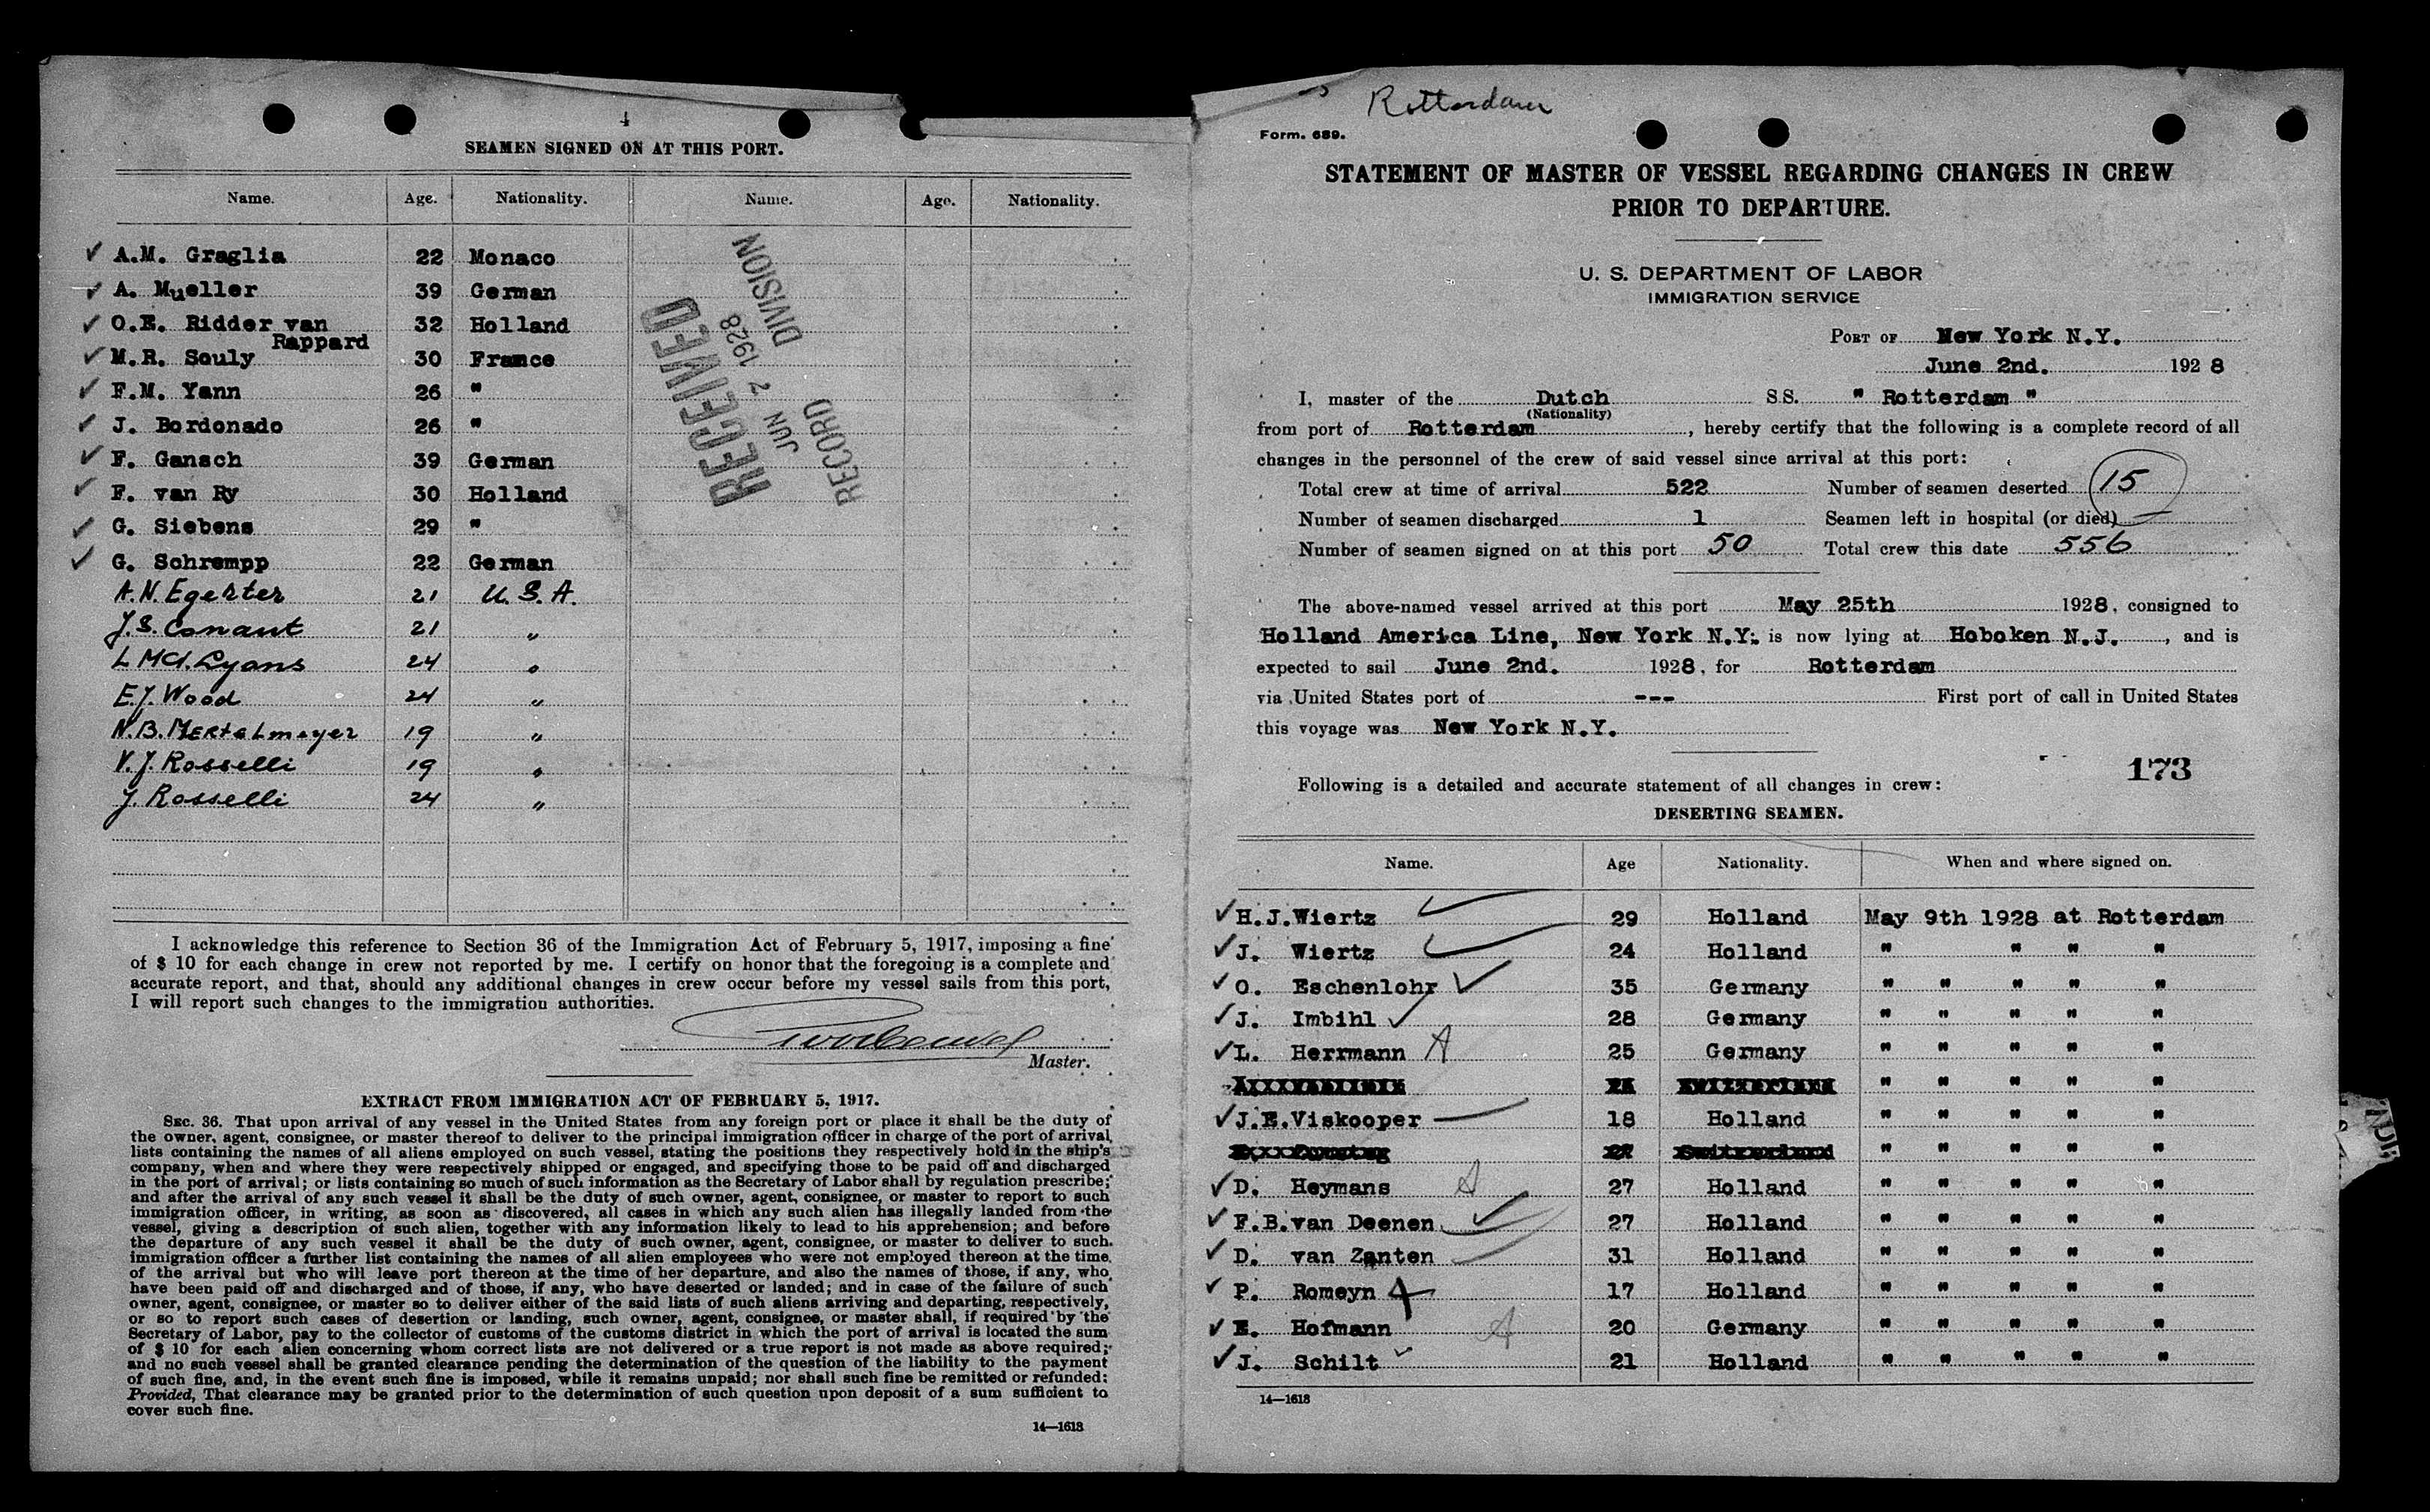 4
SEAMEN SIGNED ON AT THIS PORT.
Name. Age. Nationality. Name. Age. Nationality.
A.M. Graglia 22 Monaco
A. Mueller 39 German
O.E. Ridder van Rappard 32 Holland
M.R. Souly 30 France
F.M. Yann 26 "
J. Bordonado 26 "
F. Gansch 39 German
F. van Ry 30 Holland
G. Siebens 29 "
G. Schrempp 22 German
A.N. Egerter 21 U.S.A.
J.S. Conant 21 "
L McI. Lyans 24 "
E.J. Wood 24 "
N.B. Mertelmeyer 19 "
V.J. Rosselli 19 "
J. Rosselli 24 "
RECEIVED
JUN 2 1928
RECORD DIVISION
I acknowledge this reference to Section 36 of the Immigration Act of February 5, 1917, imposing a fine
of $ 10 for each change in crew not reported by me. I certify on honor that the foregoing is a complete and
accurate report, and that, should any additional changes in crew occur before my vessel sails from this port,
I will report such changes to the immigration authorities.
Master.
EXTRACT FROM IMMIGRATION ACT OF FEBRUARY 5, 1917.
SEC. 36. That upon arrival of any vessel in the United States from any foreign port or place it shall be the duty of
the owner, agent, consignee, or master thereof to deliver to the principal immigration officer in charge of the port of arrival
lists containing the names of all aliens employed on such vessel, stating the positions they respectively hold in the ship's
company, when and where they were respectively shipped or engaged, and specifying those to be paid off and discharged
in the port of arrival; or lists containing so much of such information as the Secretary of Labor shall by regulation prescribe;
and after the arrival of any such vessel it shall be the duty of such owner, agent, consignee, or master to report to such
immigration officer, in writing, as soon as discovered, all cases in which any such alien has illegally landed from the
vessel, giving a description of such alien, together with any information likely to lead to his apprehension; and before
the departure of any such vessel it shall be the duty of such owner, agent, consignee, or master to deliver to such.
immigration officer a further list containing the names of all alien employees who were not employed thereon at the time
of the arrival but who will leave port thereon at the time of her departure, and also the names of those, if any, who
have been paid off and discharged and of those, if any, who have deserted or landed; and in case of the failure of such
owner, agent, consignee, or master so to deliver either of the said lists of such aliens arriving and departing, respectively,
or so to report such cases of desertion or landing, such owner, agent, consignee, or master shall, if required by the
Secretary of Labor, pay to the collector of customs of the customs district in which the port of arrival is located the sum
of $ 10 for each alien concerning whom correct lists are not delivered or a true report is not made as above required;
and no such vessel shall be granted clearance pending the determination of the question of the liability to the payment
of such fine, and, in the event such fine is imposed, while it remains unpaid; nor shall such fine be remitted or refunded:
Provided, That clearance may be granted prior to the determination of such question upon deposit of a sum sufficient to
cover such fine.
14—1613
Rotterdam
Form. 689.
STATEMENT OF MASTER OF VESSEL REGARDING CHANGES IN CREW
PRIOR TO DEPARTURE.
U. S. DEPARTMENT OF LABOR
IMMIGRATION SERVICE
PORT OF New York N.Y.
June 2nd. 1928
I, master of the Dutch SS. " Rotterdam "
(Nationality)
from port of Rotterdam, hereby certify that the following is a complete record of all
changes in the personnel of the crew of said vessel since arrival at this port:
Total crew at time of arrival 522 Number of seamen deserted 15
Number of seamen discharged 1 Seamen left in hospital (or died)
Number of seamen signed on at this port 50 Total crew this date 556
The above-named vessel arrived at this port May 25th 1928, consigned to
Holland America Line, New York N.Y. is now lying at Hoboken N.J., and is
expected to sail June 2nd. 1928, for Rotterdam
via United States port of --- First port of call in United States
this voyage was New York N.Y.
173
Following is a detailed and accurate statement of all changes in crew:
DESERTING SEAMEN.
Name. Age Nationality. When and where signed on.
H.J. Wiertz 29 Holland May 9th 1928 at Rotterdam
J. Wiertz 24 Holland " " " "
O. Eschenlohr 35 Germany " " " " "
J. Imbihl 28 Germany " " " " "
L. Herrmann A 25 Germany " " " " "
" " " " "
J.E. Viskooper 18 Holland " " " " "
" " " " "
D. Heymans A 27 Holland " " " " "
F.B. van Deenen 27 Holland " " " " "
D. van Zanten 31 Holland " " " " "
P. Romeyn 17 Holland " " " " "
E. Hofmann A 20 Germany " " " " "
J. Schilt 21 Holland " " " " "
14—1613